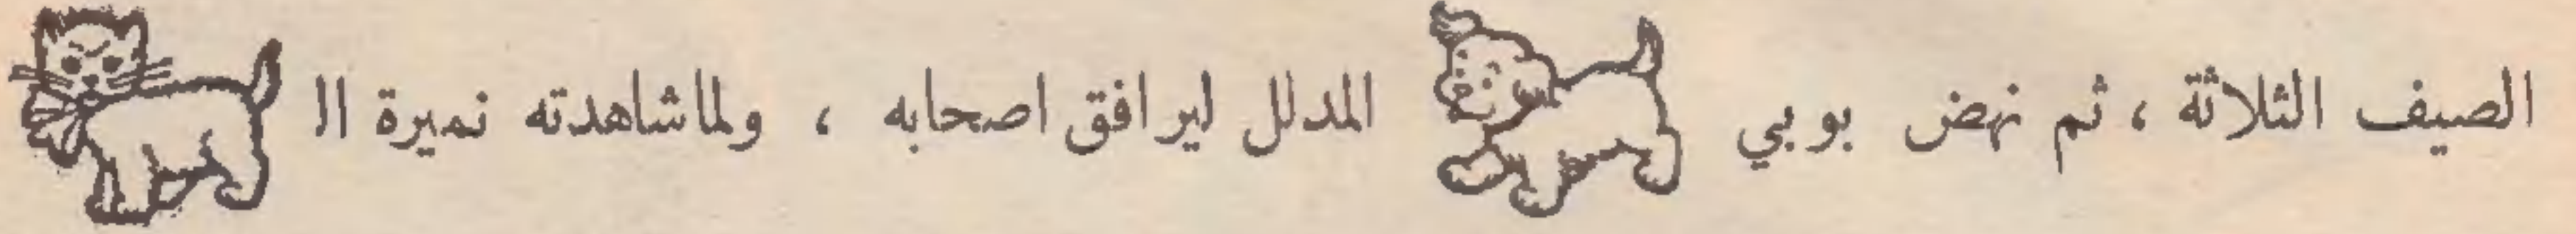 الصيف الثلاثة ، ثم نهض بوبي المدلل ليرافق اصحابه ، ولما شاهدته نميرة ال